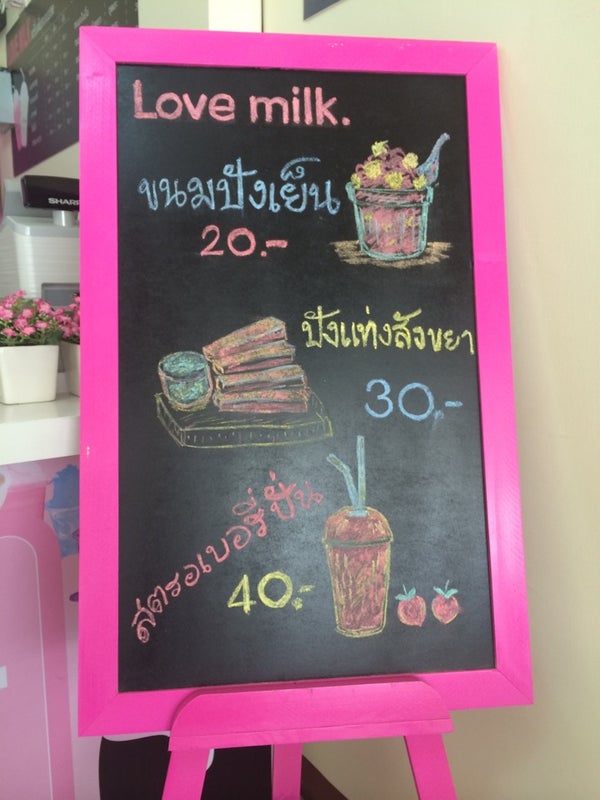 Love milk.
ขนมปังเย็น
20.-
ปังแท่งสังขยา
30.-
สตรอเบอรี่ปั่น
40.-
SHARP